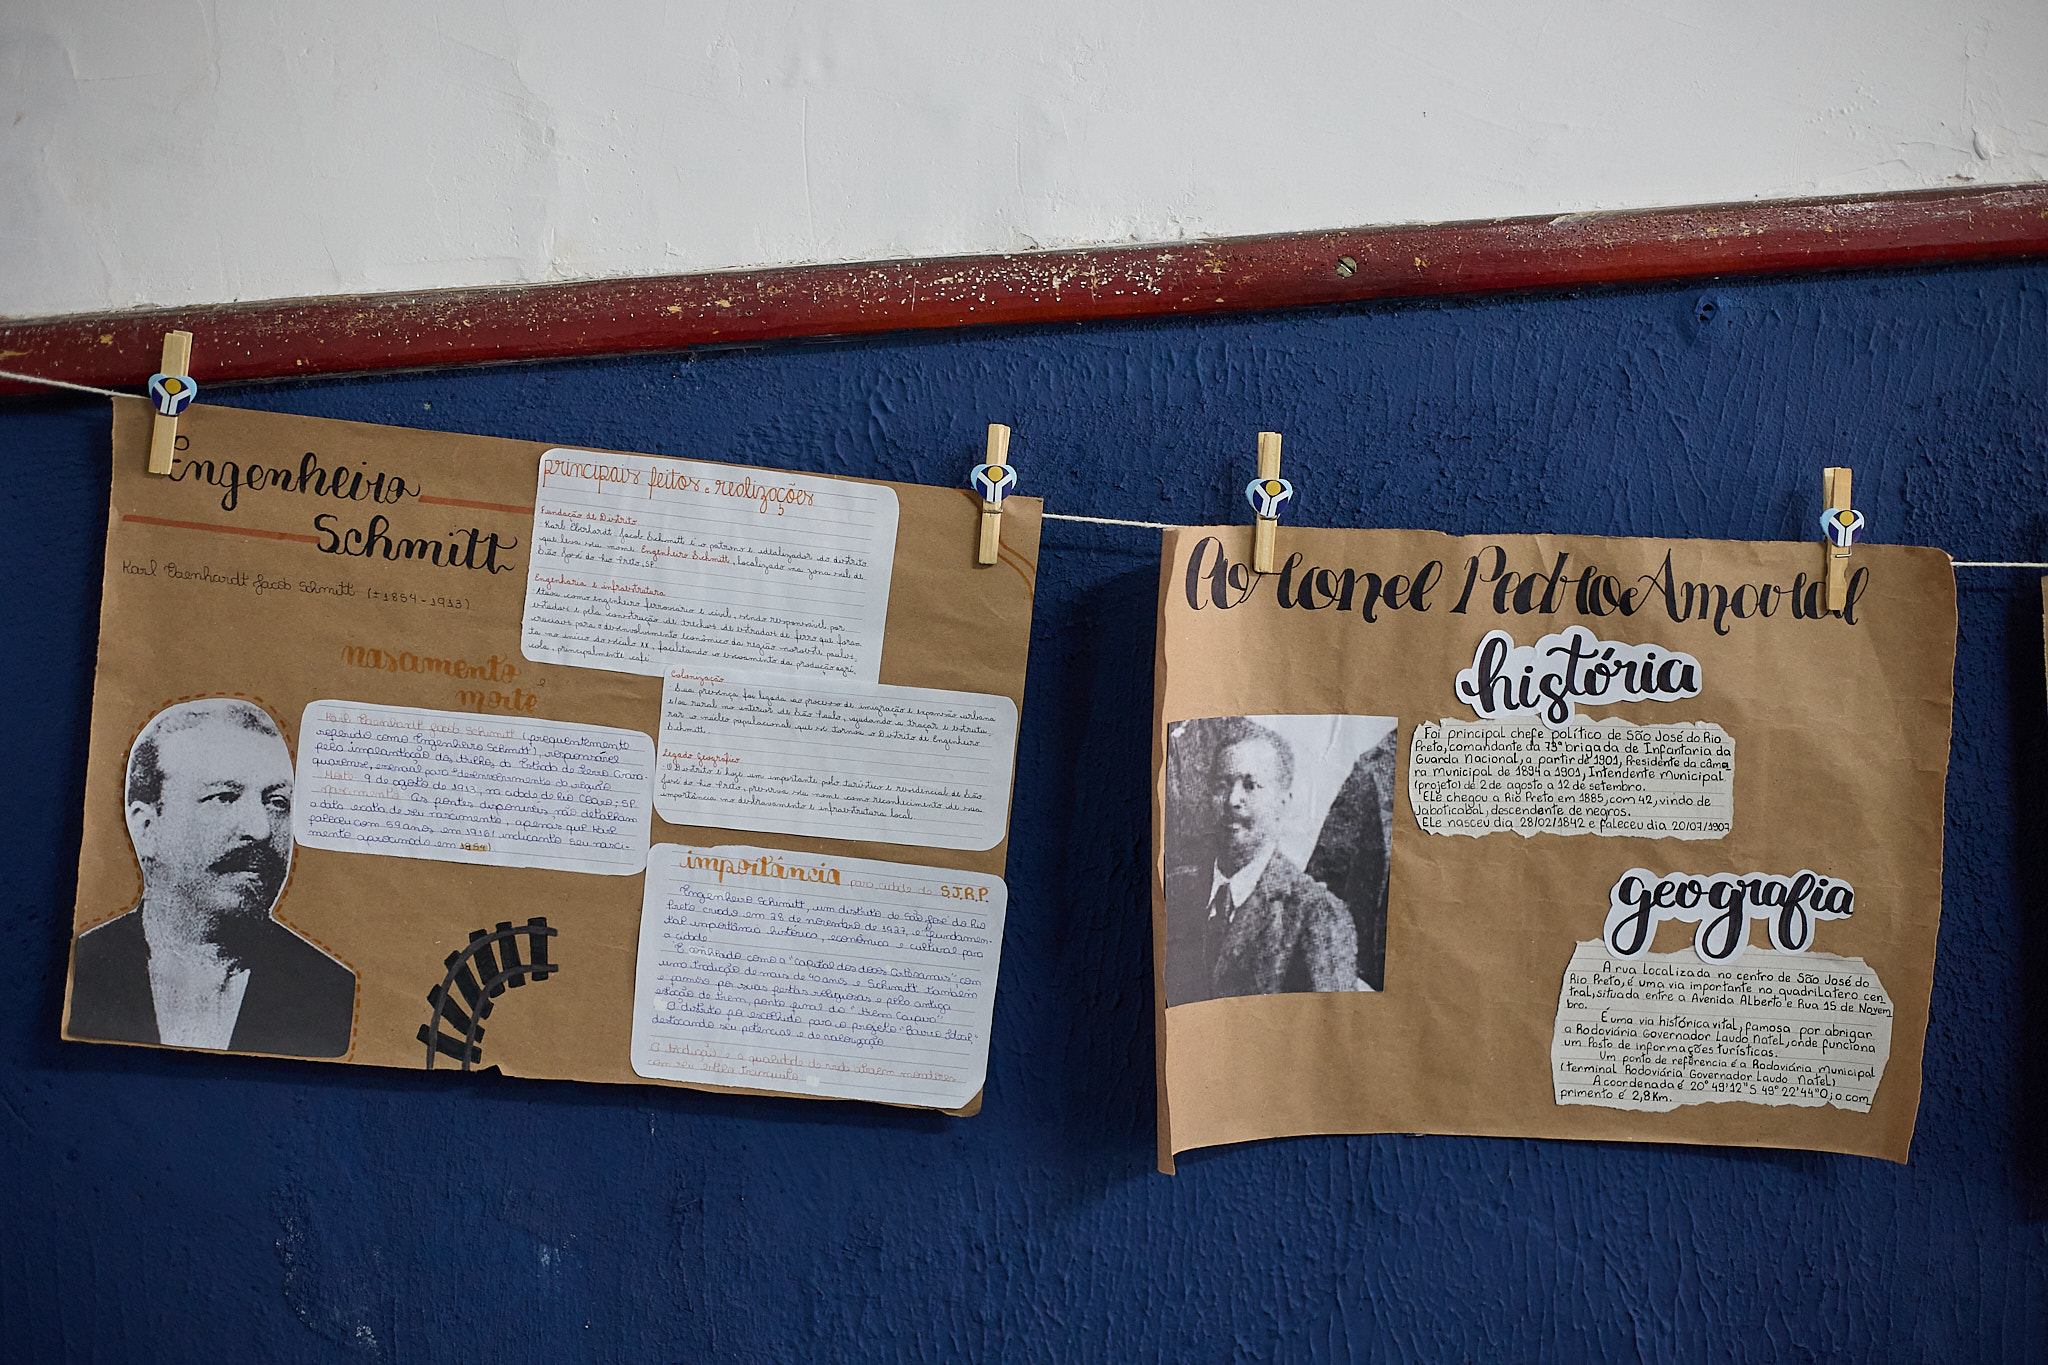 Engenheiro
Schmitt
Karl Eaenhardt Jacob Schmitt (±1854-1913).
nascimento
e
morte
Karl Eaenhardt Jacob Schmitt (frequentemente
referido como Engenheiro Schmitt), responsável
pela implantação dos trilhos da Estrada de Ferro Arara-
quarense, essencial para desenvolvimento da região
Morte: 9 de agosto de 1913, na cidade de Rio Claro, SP
nascimento: As fontes disponíveis não detalham
a data exata de seu nascimento, apenas que Karl
faleceu com 59 anos, em 1913, indicando seu nasci-
mento aproximado em 1854)
principais feitos e realizações
Fundação de Distrito
- Karl Eberhardt Jacob Schmitt é o patrono e idealizador do distrito
que leva seu nome Engenheiro Schmitt, localizado na zona sul de
São José do Rio Preto, SP.
Engenharia e infraestrutura
Atuou como engenheiro ferroviário e civil, sendo responsável por
estradas e pela construção de trechos de estradas de ferro que foram
cruciais para o desenvolvimento econômico da região noroeste paulis-
ta no início do século XX, facilitando o escoamento da produção agrí-
cola, principalmente café.
Colonização
- Sua presença foi ligada ao processo de imigração e expansão urbana
e/ou rural no interior de São Paulo, ajudando a traçar e estrutu-
rar o núcleo populacional que se tornou o Distrito de Engenheiro
Schmitt.
Legado Geográfico
- O Distrito é hoje um importante polo turístico e residencial de São
José do Rio Preto, preserva seu nome como reconhecimento de sua
importância no desbravamento e infraestrutura local.
importância para cidade de S.J.R.P.
Engenheiro Schmitt, um distrito de São José do Rio
Preto criado em 28 de novembro de 1927, é fundamen-
tal importância histórica, econômica e cultural para
a cidade
É conhecido como a "capital dos doces Artesanais", com
uma tradição de mais de 40 anos e Schmitt também
é famoso por suas festas religiosas e pela antiga
estação de trem, ponto final do "trem Caipira".
O distrito foi escolhido para o projeto "Bairro Ideal,"
destacando seu potencial e de valorização
A tradição e a qualidade de vida atraem moradores
com seu estilo tranquilo
Coronel Pedro Amaral
história
Foi principal chefe político de São José do Rio
Preto, comandante da 73ª brigada de Infantaria da
Guarda Nacional, a partir de 1901, Presidente da câma
ra municipal de 1894 a 1901, Intendente Municipal
(projeto) de 2 de agosto a 12 de setembro.
Ele chegou a Rio Preto em 1885, com 42, vindo de
Jaboticabal, descendente de negros.
Ele nasceu dia 28/02/1842 e faleceu dia 20/07/1907
geografia
A rua localizada no centro de São José do
Rio Preto, é uma via importante no quadrilatero cen
tral, situada entre a Avenida Alberto e Rua 15 de Novem
bro.
É uma via histórica vital, famosa por abrigar
a Rodoviária Governador Laudo Natel, onde funciona
um Posto de informações turísticas.
Um ponto de referência é a Rodoviária Municipal
(terminal Rodoviária Governador Laudo Natel)
A coordenada é 20° 49'12"S 49° 22'44"O; o com
primento é 2,8Km.